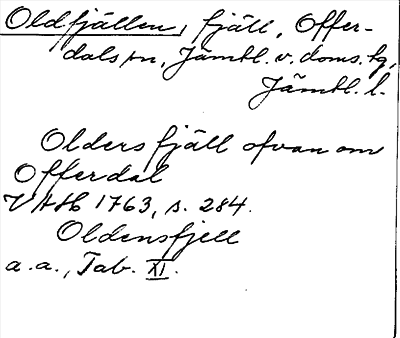 Oldfjällen, fjäll, Offer-
dals sn, Jämtl. v. doms. tg,
Jämtl. l.
Olders fjäll ofvan om
Offerdal
VAH 1763, s. 284.
Oldensfjell
a.a., Tab. XI.